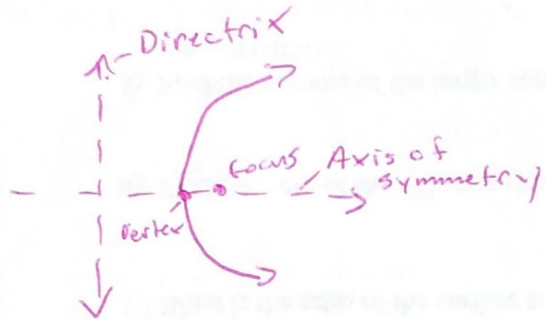 Directrix
Focus
Axis of
symmetry
Vertex